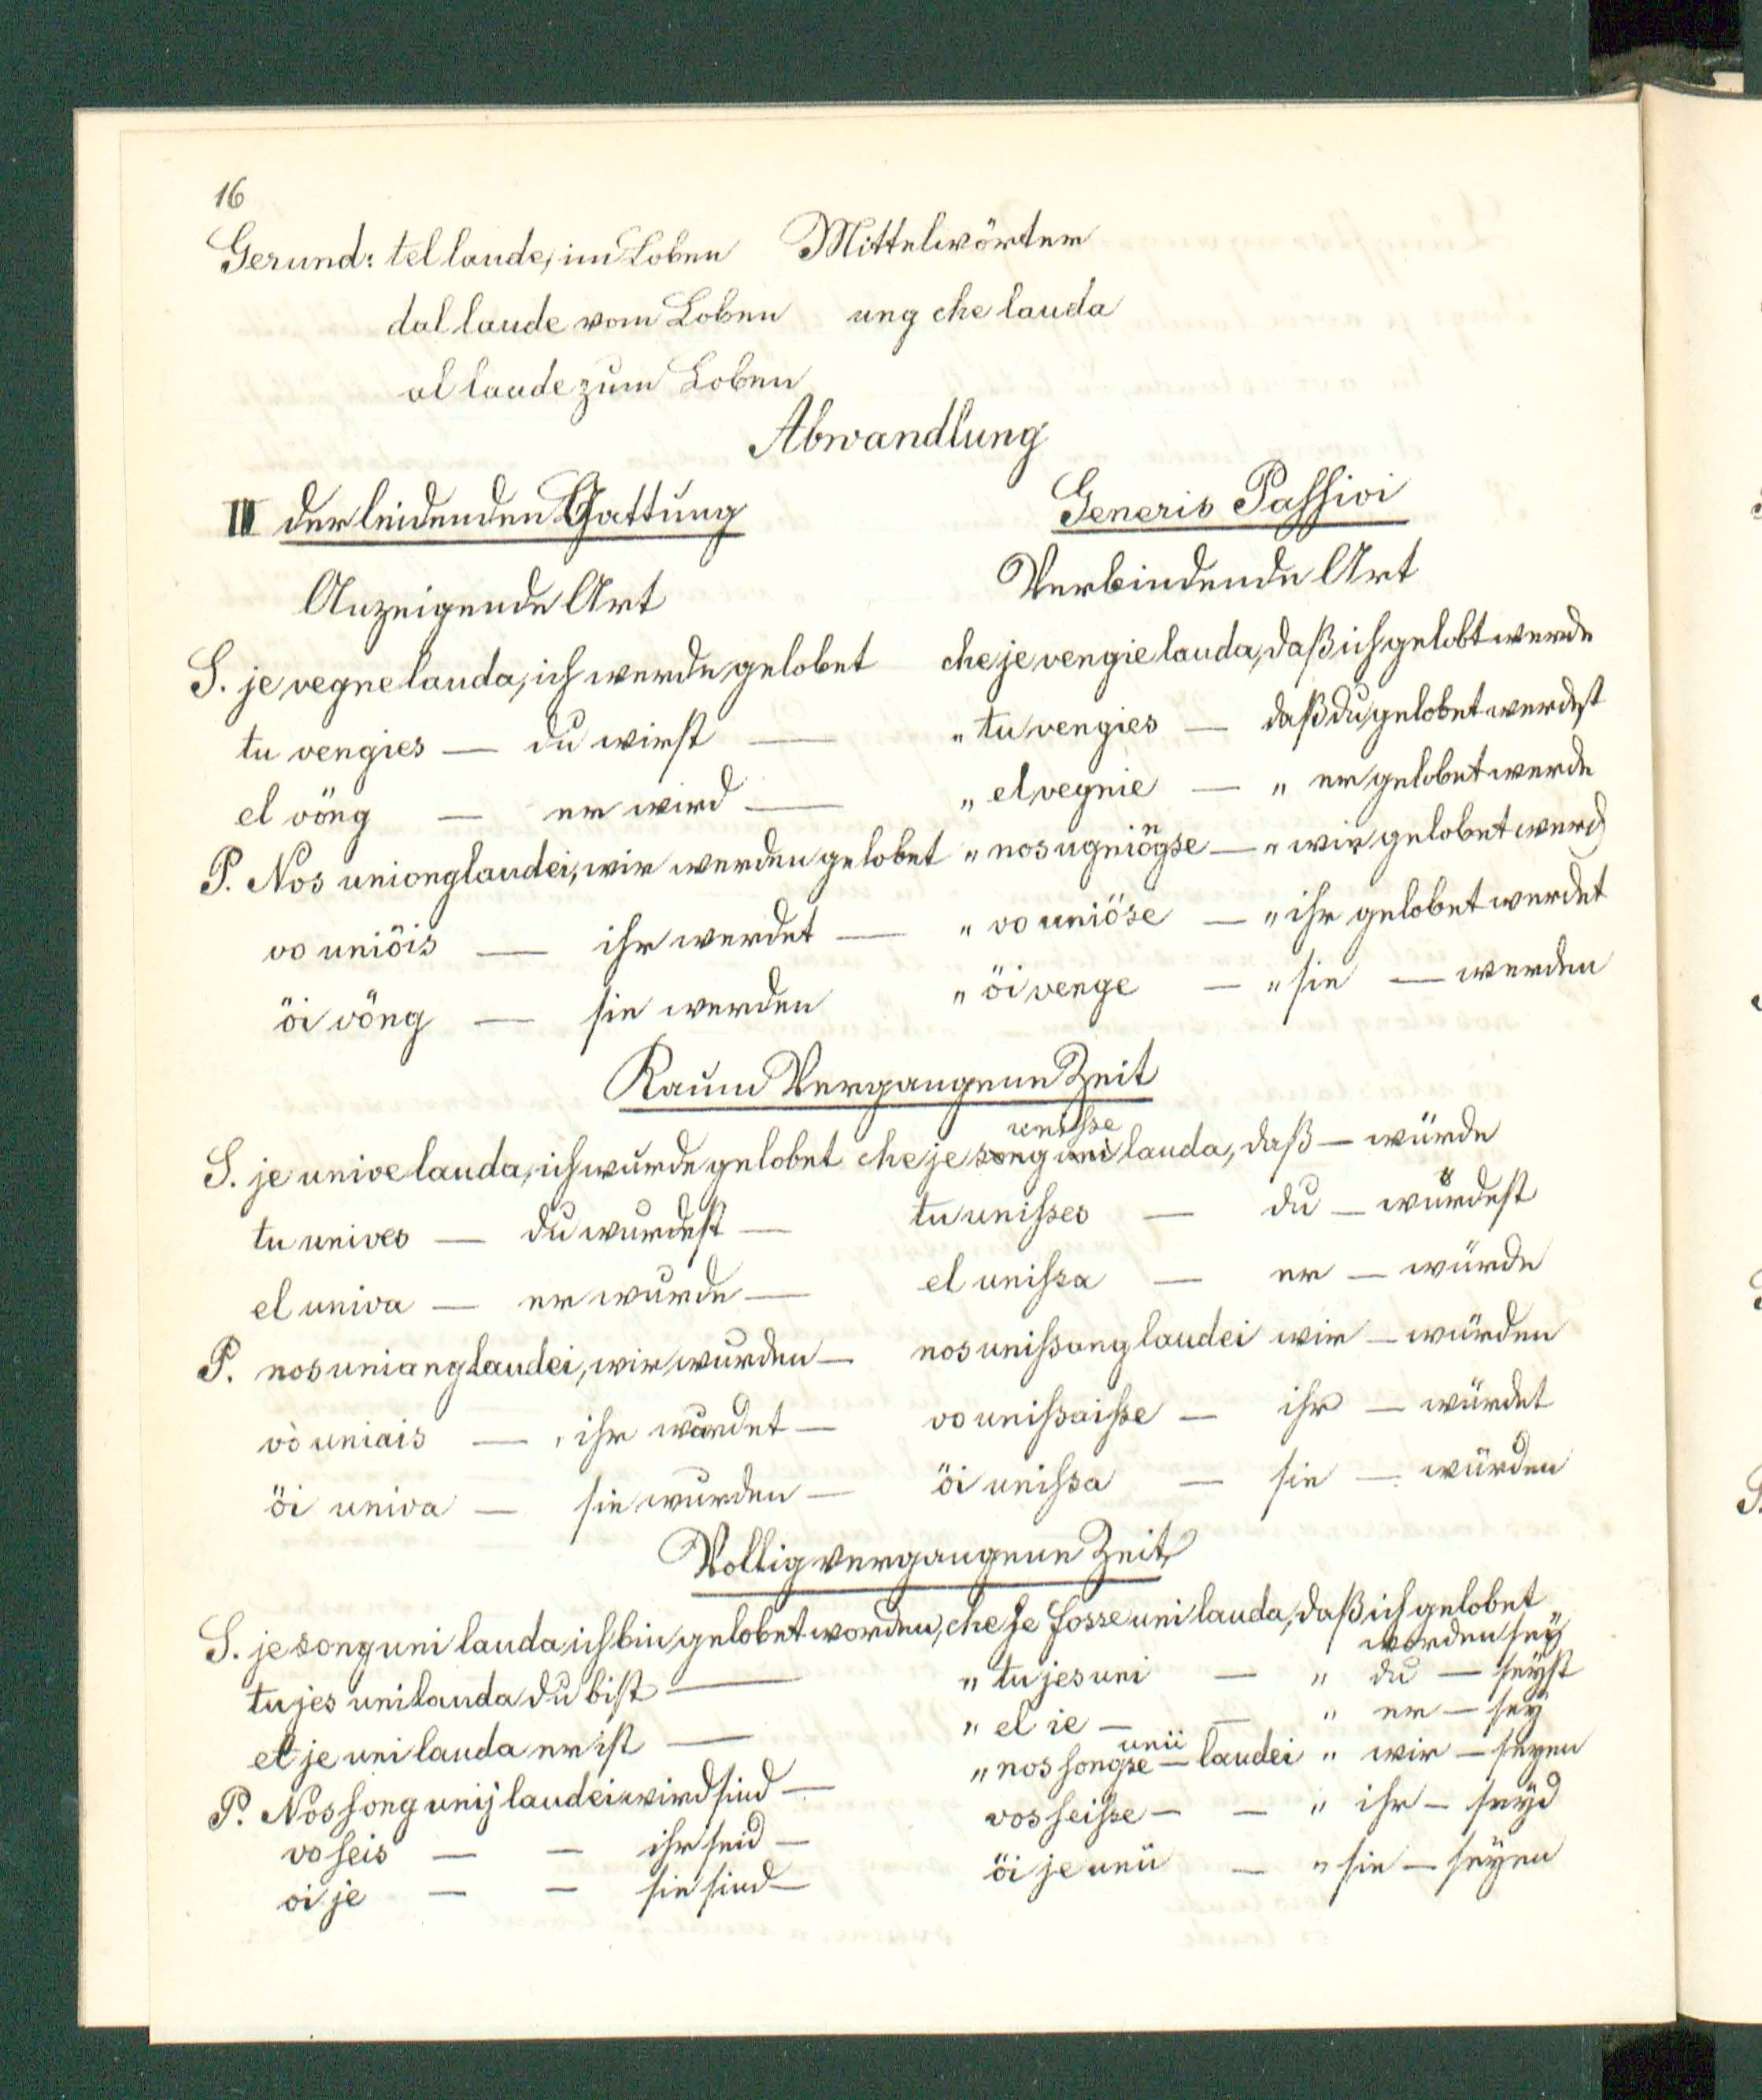 16
Gerund: tel laude, im Loben Mittelwörter
dal laude vom Loben ung che lauda
al laude zum Loben
Abwandlung
III der leidenden Gattung Generis Passivi
Anzeigende Art Verbindende Art
S. je vegne lauda, ich werde gelobet che je vengie lauda, daß ich gelobt werde
tu vengies — du wirst — " tu vengies — daß du gelobet werdest
el vöng — er wird — " el vegnie — " er gelobet werde
P. Nos uniong laudei, wir werden gelobet " nos ugniöngse — " wir gelobet werd
vo uniöis — ihr werdet — " vo uniöse — " ihr gelobet werdet
öi vöng — sie werden " öi venge — " sie — werden
Kaum Vergangene Zeit
S. je unive lauda, ich wurde gelobet che je unisse lauda, daß — würde
tu unives — du wurdest — tu unisses — du — würdest
el univa — er wurde — el unissa — er — würde
P. nos uniang laudei, wir wurden — nos unissang laudei wir — würden
vò uniais — ihr wurdet — vo unissaisse — ihr — würdet
öi univa — sie wurden — öi unissa — sie — würden
Vollig vergangene Zeit
S. je song uni lauda ich bin gelobet worden, che je fosse uni lauda, daß ich gelobet
worden sey
tu jes uni lauda du bist — " tu jes uni — " du — seyst
el je uni lauda er ist — " el ie — — " er — sey
P. Nos song unij laudei wird sind — " nos songse unii — laudei " wir — seyen
vo seis — — ihr seid — vos seisse — — " ihr — seyd
oi je — — sie sind — öi je unii — " sie — seyen